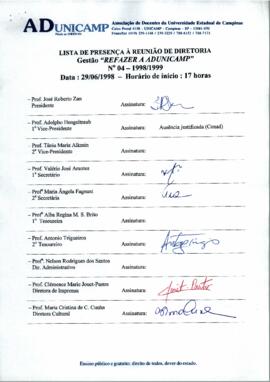 ADUNICAMP
Associação de Docentes da Universidade Estadual de Campinas
LISTA DE PRESENÇA À REUNIÃO DE DIRETORIA
Gestão "REFAZER A ADUNICAMP"
Nº 04 – 1998/1999
Data : 29/06/1998 – Horário de início : 17 horas
– Prof. José Roberto Zan
Presidente
Assinatura:
– Prof. Adolpho Hengeltraub
1º Vice-Presidente
Assinatura: Ausência justificada (Consd)
– Prof. Tânia Maria Alkmin
2º Vice-Presidente
Assinatura:
– Prof. Valério José Arantes
1º Secretário
Assinatura:
– Profª Maria Ângela Fagnani
2º Secretário
Assinatura:
– Profª Alba Regina M. S. Brito
1ª Tesoureira
Assinatura:
– Prof. Antonio Trigueiros
2º Tesoureiro
Assinatura:
– Profº. Nelson Rodrigues dos Santos
Dir. Administrativo
Assinatura:
– Prof. Clémence Marie Jouet-Pastre
Diretora de Imprensa
Assinatura:
– Prof. Maria Cristina de C. Cunha
Diretora Cultural
Assinatura:
Ensino público e gratuito: direito de todos, dever do estado.